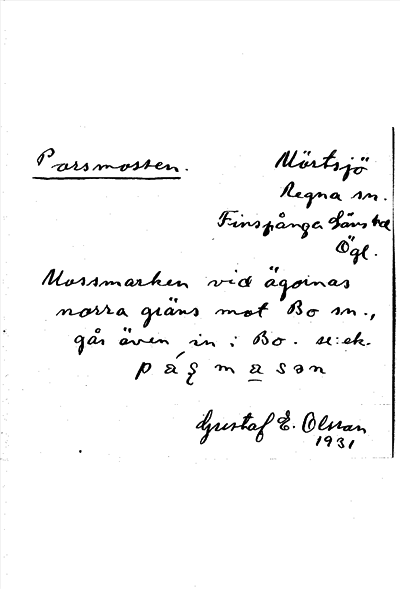 Porsmossen.
Mörtsjö
Regna sn.
Finspånga läns hd
Ögl.
Mossmarken vid ägornas
norra gräns mot Bo sn.,
går även in i Bo. se: ek.
Gustaf E. Olsson
1931